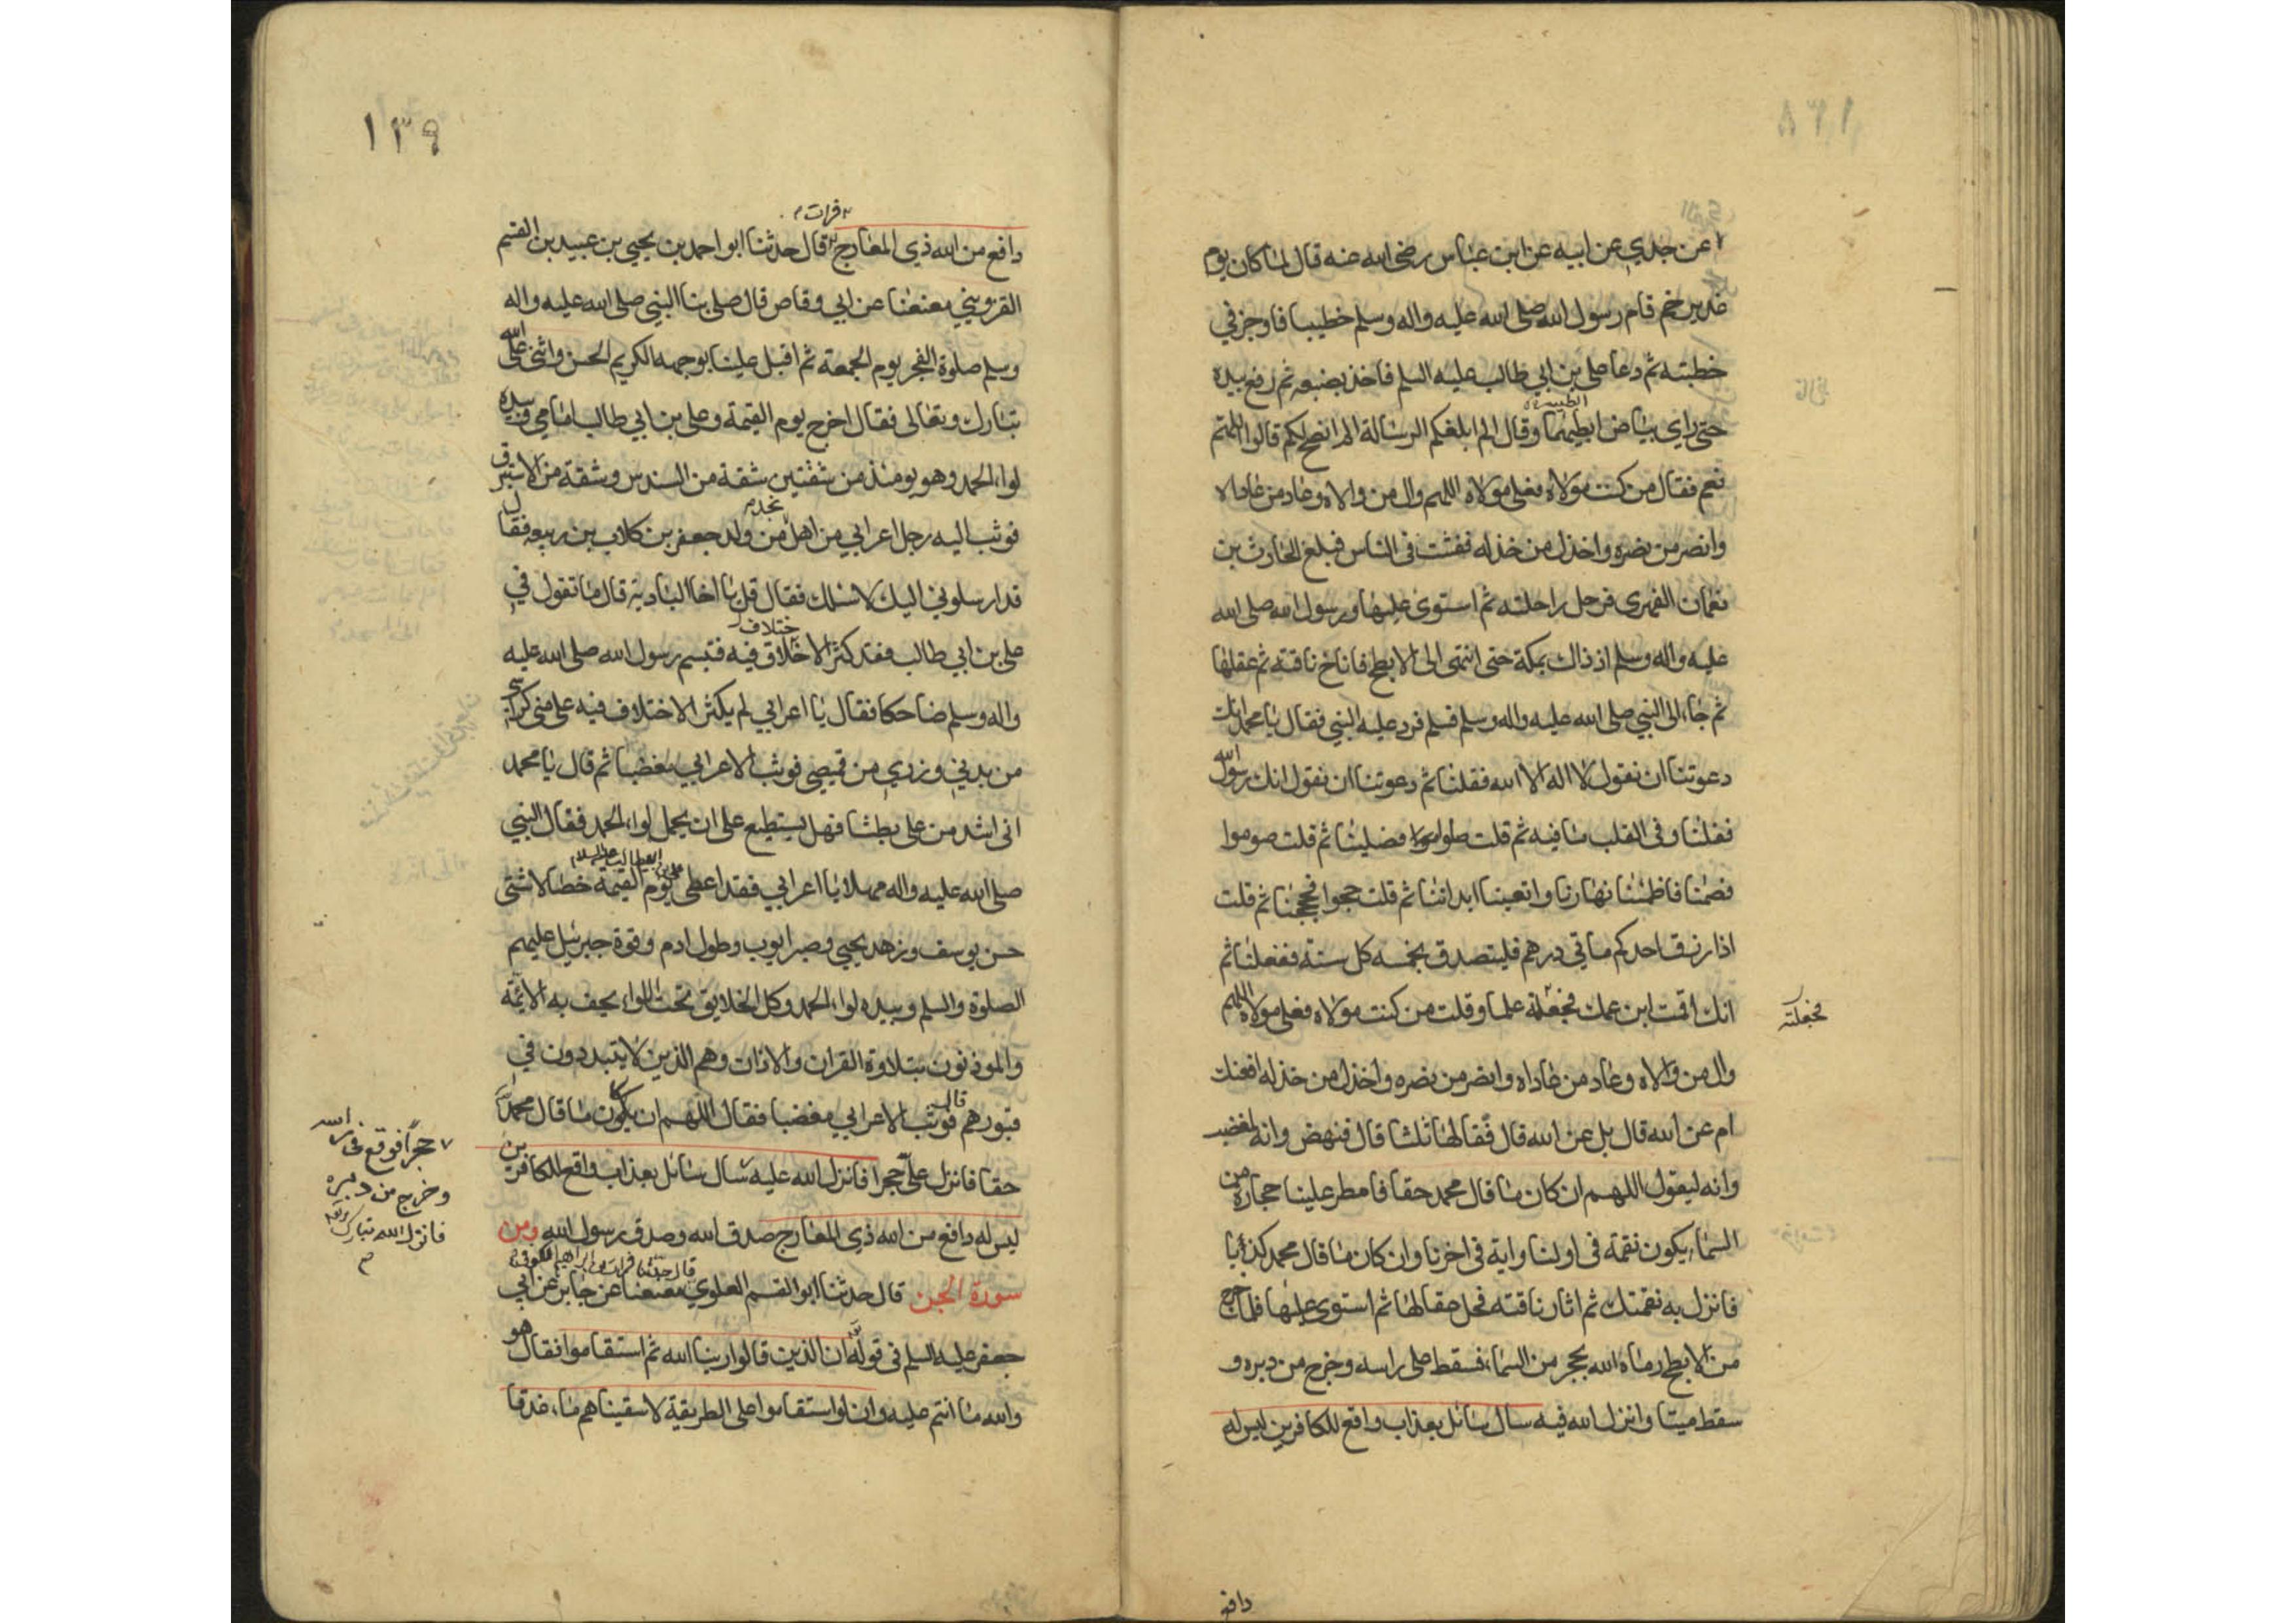 عن جدي عن ابيه عن ابن عباس رضى الله عنه قال لما كان يوم
غدير خم قام رسول الله صلى الله عليه واله وسلم خطيبا فاوجز في
خطبته ثم دعا على بن ابي طالب عليه السلم فاخذ بضبعه ثم رفع بيده
حتى راى بياض ابطيهما وقال الم ابلغكم الرسالة الم انصح لكم قالوا اللهم
نعم فقال من كنت مولاه فعلى مولاه اللهم وال من والاه وعاد من عاداه
وانصر من نصره واخذل من خذله ففشت فى الناس فبلغ الحارث بن
نعمان الفهرى فرحل راحلته ثم استوى عليها ورسول الله صلى الله
عليه واله وسلم اذ ذاك بمكة حتى انتهى الى الابطح فاناخ ناقته ثم عقلها
ثم جاء الى النبي صلى الله عليه واله وسلم فسلم فرد عليه النبي فقال يا محمد انك
دعوتنا ان نقول لا اله الا الله فقلنا ثم دعوتنا ان نقول انك رسول الله
فقلنا وفى القلب ما فيه ثم قلت صلوا فصلينا ثم قلت صوموا
فصمنا فاظمئنا نهارنا واتعبنا ابداننا ثم قلت حجوا فحججنا ثم قلت
اذا رزق احدكم ماتي درهم فليتصدق بخمسه كل سنة ففعلنا ثم
انك اقمت ابن عمك فجعلته علما وقلت من كنت مولاه فعلى مولاه اللهم
فجعلته
وال من والاه وعاد من عاداه وانصر من نصره واخذل من خذله افعنك
ام عن الله قال بل عن الله قال فقالها ثلثا قال فنهض وانه لمغضب
وانه ليقول اللهم ان كان ما قال محمد حقا فامطر علينا حجارة من
السماء يكون نقمة فى اولنا واية فى اخرنا وان كان ما قال محمد كذبا
فانزل به نقمتك ثم اثار ناقته فحل عقالها ثم استوى عليها فلما خرج
من الابطح رماه الله بحجر من السماء فسقط على راسه وخرج من دبره و
سقط ميتا وانزل الله فيه سال سائل بعذاب واقع للكافرين ليس له
دافع
١٣٩
فرات
دافع من الله ذي المعارج قال حدثنا ابو احمد بن يحيى بن عبيد بن القسم
القزويني معنعنا عن ابي وقاص قال صلى بنا النبي صلى الله عليه واله
وسلم صلوة الفجر يوم الجمعة ثم اقبل علينا بوجهه الكريم الحسن واثنى على الله
تبارك وتعالى فقال اخرج يوم القيمة وعلى بن ابي طالب امامي وبيده
لواء الحمد وهو يومئذ من شقتين شقة من السندس وشقة من الاستبرق
نجد
فوثب اليه رجل اعرابي من اهل من ولد جعفر بن كلاب بن ربيعه فقال
قد ارسلوني اليك لاسئلك فقال قل يا اخا البادية قال ما تقول في
ختلاف
على بن ابي طالب فقد كثر الاختلاف فيه فتبسم رسول الله صلى الله عليه
واله وسلم ضاحكا فقال يا اعرابي لم يكثر الاختلاف فيه على منى كراسي
من بدني وزري من قميصى فوثب الاعرابي مغضبا ثم قال يا محمد
انى اشد من على بطشا فهل يستطيع على ان يحمل لواء الحمد فقال النبي
على بن ابيطالب عليه السلام
صلى الله عليه واله مهلا يا اعرابي فقد اعطى يوم القيمة خصالا شتى
حسن يوسف وزهد يحيى وصبر ايوب وطول ادم وقوة جبرئيل عليهم
الصلوة والسلم وبيده لواء الحمد وكل الخلايق تحت اللواء يحف به الائمة
والموذنون بتلاوة القران والاذان وهم الذين لا يتبددون في
قبورهم فوثب الاعرابي مغضبا فقال اللهم ان يكون ما قال محمد
حقا فانزل على حجرا فانزل الله عليه سال سائل بعذاب واقع للكافرين
حجرا فوقع فى راسه
وخرج من دبره
فانزل الله تبارك وتعالى
ليس له دافع من الله ذي المعارج صدق الله وصدق رسول الله ومن
قال حدثنا فرات بن ابراهيم الكوفى
سورة الجن قال حدثنا ابو القسم العلوي معنعنا عن جابر عن ابي
جعفر عليه السلم فى قوله ان الذين قالوا ربنا الله ثم استقاموا فقال هو
والله ما انتم عليه وان لو استقاموا على الطريقة لاسقيناهم ماء غدقا